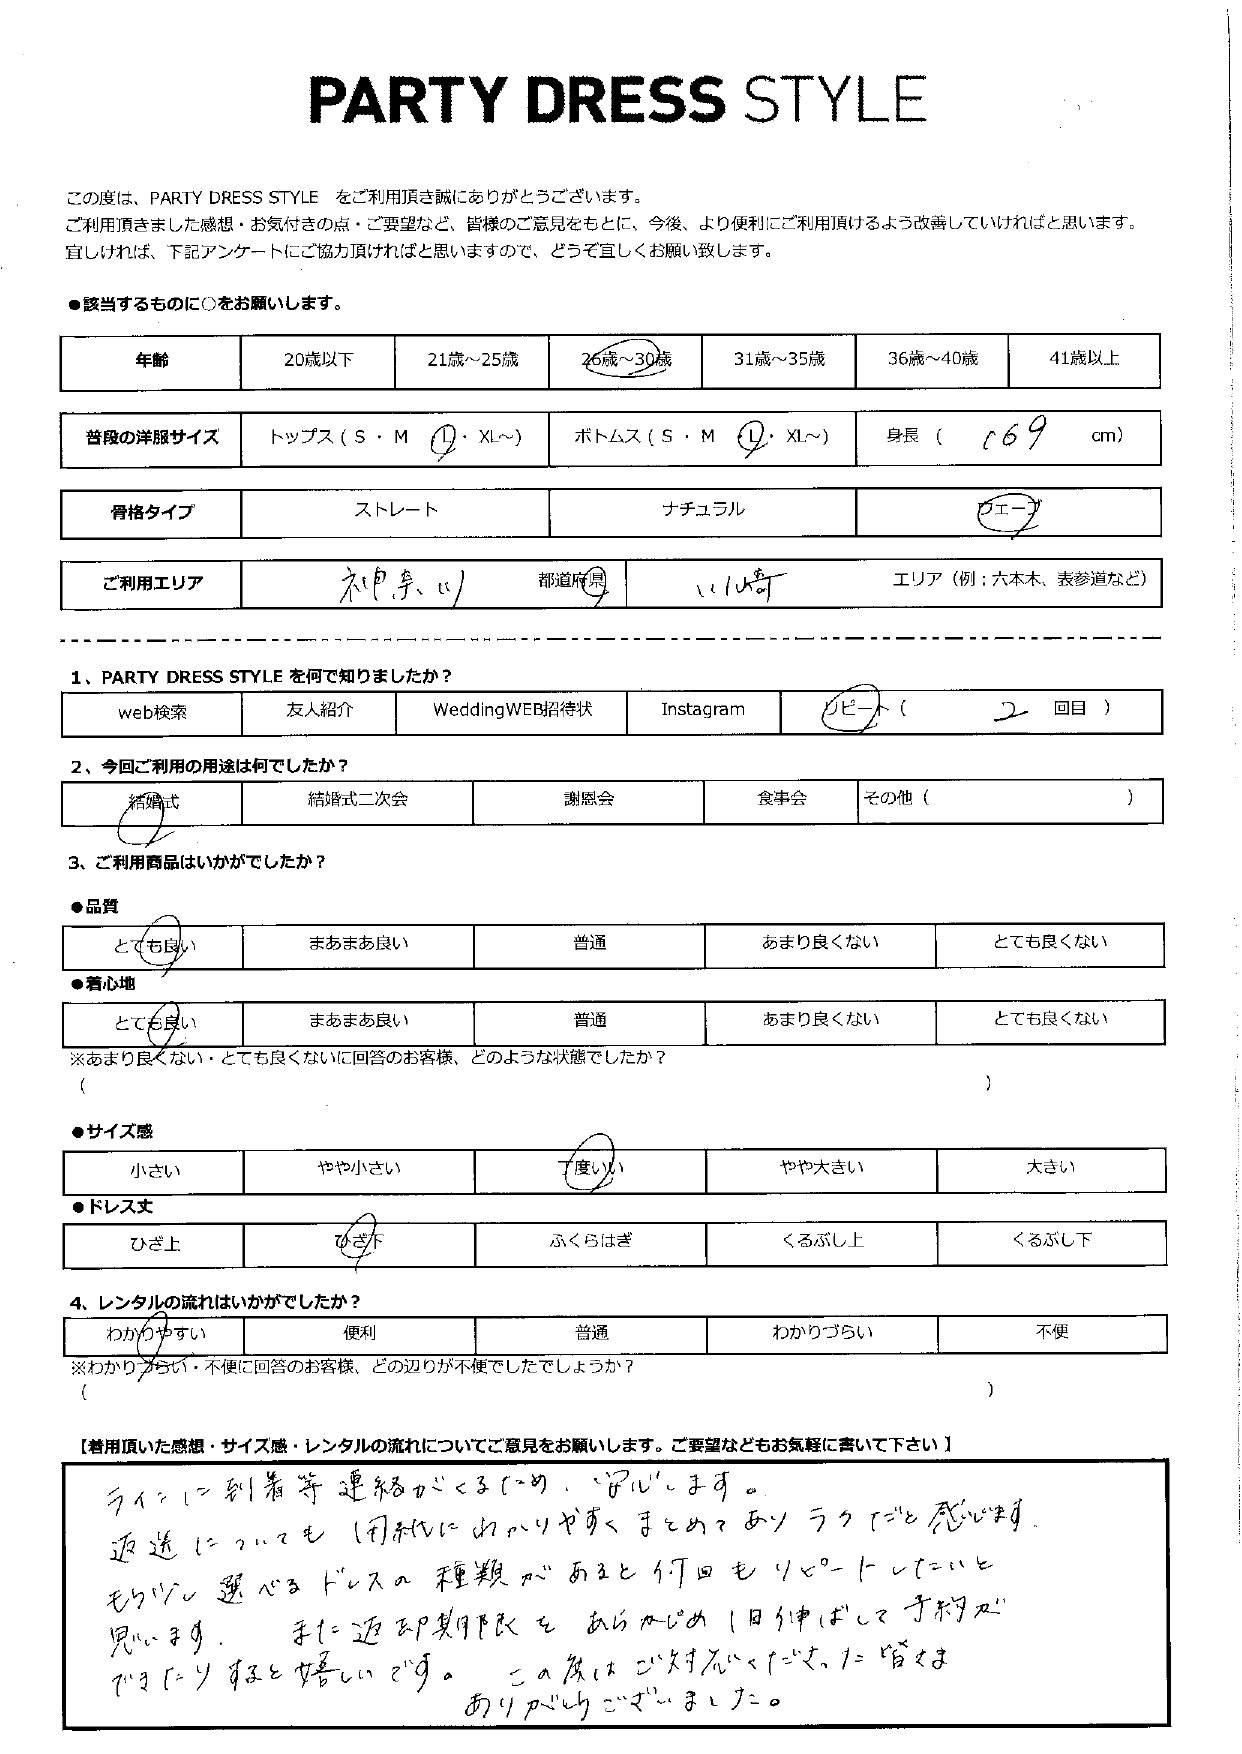 PARTY DRESS STYLE
この度は、PARTY DRESS STYLE をご利用頂き誠にありがとうございます。
ご利用頂きました感想・お気付きの点・ご要望など、皆様のご意見をもとに、今後、より便利にご利用頂けるよう改善していければと思います。
宜しければ、下記アンケートにご協力頂ければと思いますので、どうぞ宜しくお願い致します。
●該当するものに○をお願いします。
年齢 20歳以下 21歳～25歳 26歳～30歳 31歳～35歳 36歳～40歳 41歳以上
普段の洋服サイズ トップス ( S ・ M ・ L ・ XL～) ボトムス ( S ・ M ・ L ・ XL～) 身長 ( 169 cm)
骨格タイプ ストレート ナチュラル ウェーブ
ご利用エリア 神奈川 都道府県 川崎 エリア（例：六本木、表参道など）
1、PARTY DRESS STYLE を何で知りましたか？
web検索 友人紹介 WeddingWEB招待状 Instagram リピート ( 2 回目 )
2、今回ご利用の用途は何でしたか？
結婚式 結婚式二次会 謝恩会 食事会 その他 ( )
3、ご利用商品はいかがでしたか？
●品質
とても良い まあまあ良い 普通 あまり良くない とても良くない
●着心地
とても良い まあまあ良い 普通 あまり良くない とても良くない
※あまり良くない・とても良くないに回答のお客様、どのような状態でしたか？
( )
●サイズ感
小さい やや小さい 丁度いい やや大きい 大きい
●ドレス丈
ひざ上 ひざ下 ふくらはぎ くるぶし上 くるぶし下
4、レンタルの流れはいかがでしたか？
わかりやすい 便利 普通 わかりづらい 不便
※わかりづらい・不便に回答のお客様、どの辺りが不便でしたでしょうか？
( )
【着用頂いた感想・サイズ感・レンタルの流れについてご意見をお願いします。ご要望などもお気軽に書いて下さい】
ラインに到着等連絡がくるため、安心します。
返送についても用紙にわかりやすくまとめてありラクだと感じます。
もう少し選べるドレスの種類があると何回もリピートしたいと
思います。また返却期限をあらかじめ1日伸ばして予約が
できたりすると嬉しいです。この度はご対応くださった皆さま
ありがとうございました。